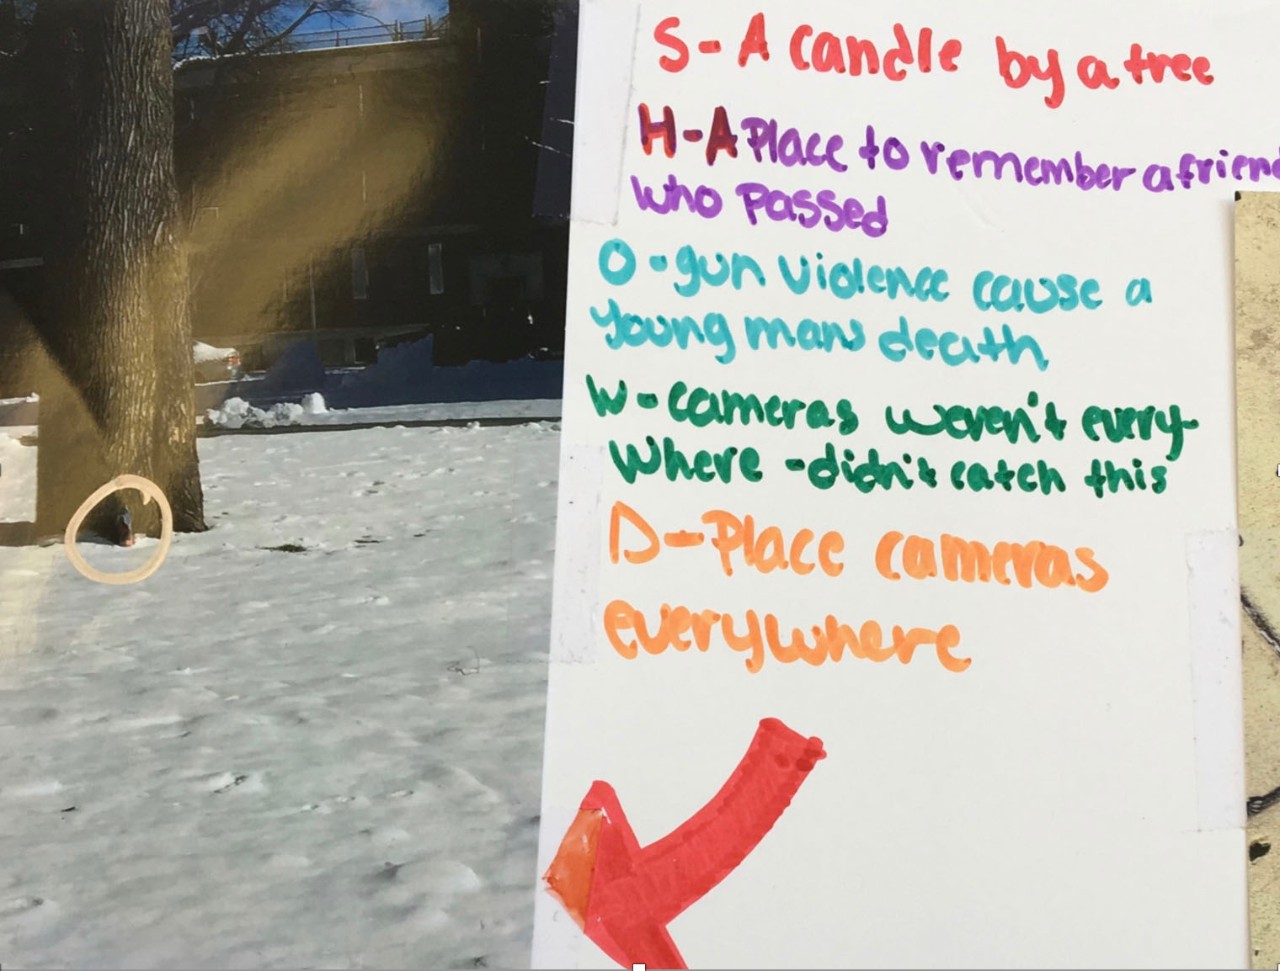 S- A candle by a tree
H-A Place to remember a friend
who Passed
O -gun violence cause a
young mans death
W- cameras weren't every-
where -didn't catch this
D-Place cameras
everywhere